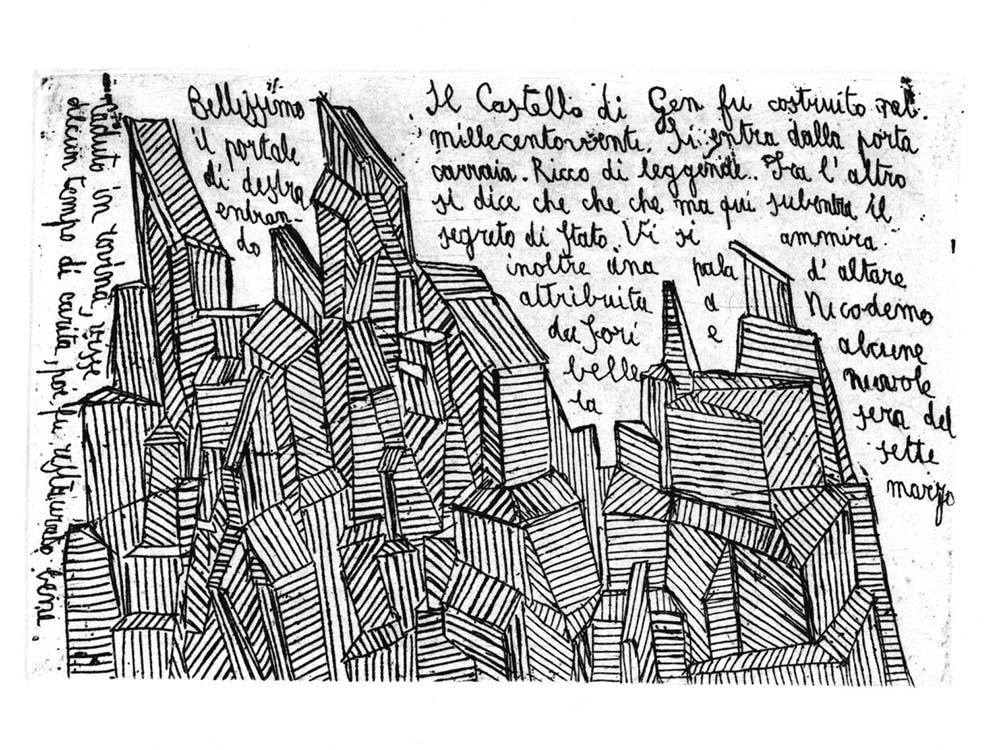 Bellissimo
il portale
di destra
entran-
do
Il Castello di Gen fu costruito nel
millecentoventi. Si entra dalla porta
carraia. Ricco di leggende. Fra l'altro
si dice che che che ma qui subentra il
segreto di Stato. Vi si ammira
inoltre una pala d'altare
attribuita a Nicodemo
da Forì e alcune
belle nuvole
la sera del
sette
marzo
Caduto in rovina, visse
tempo di poi fu restaurato